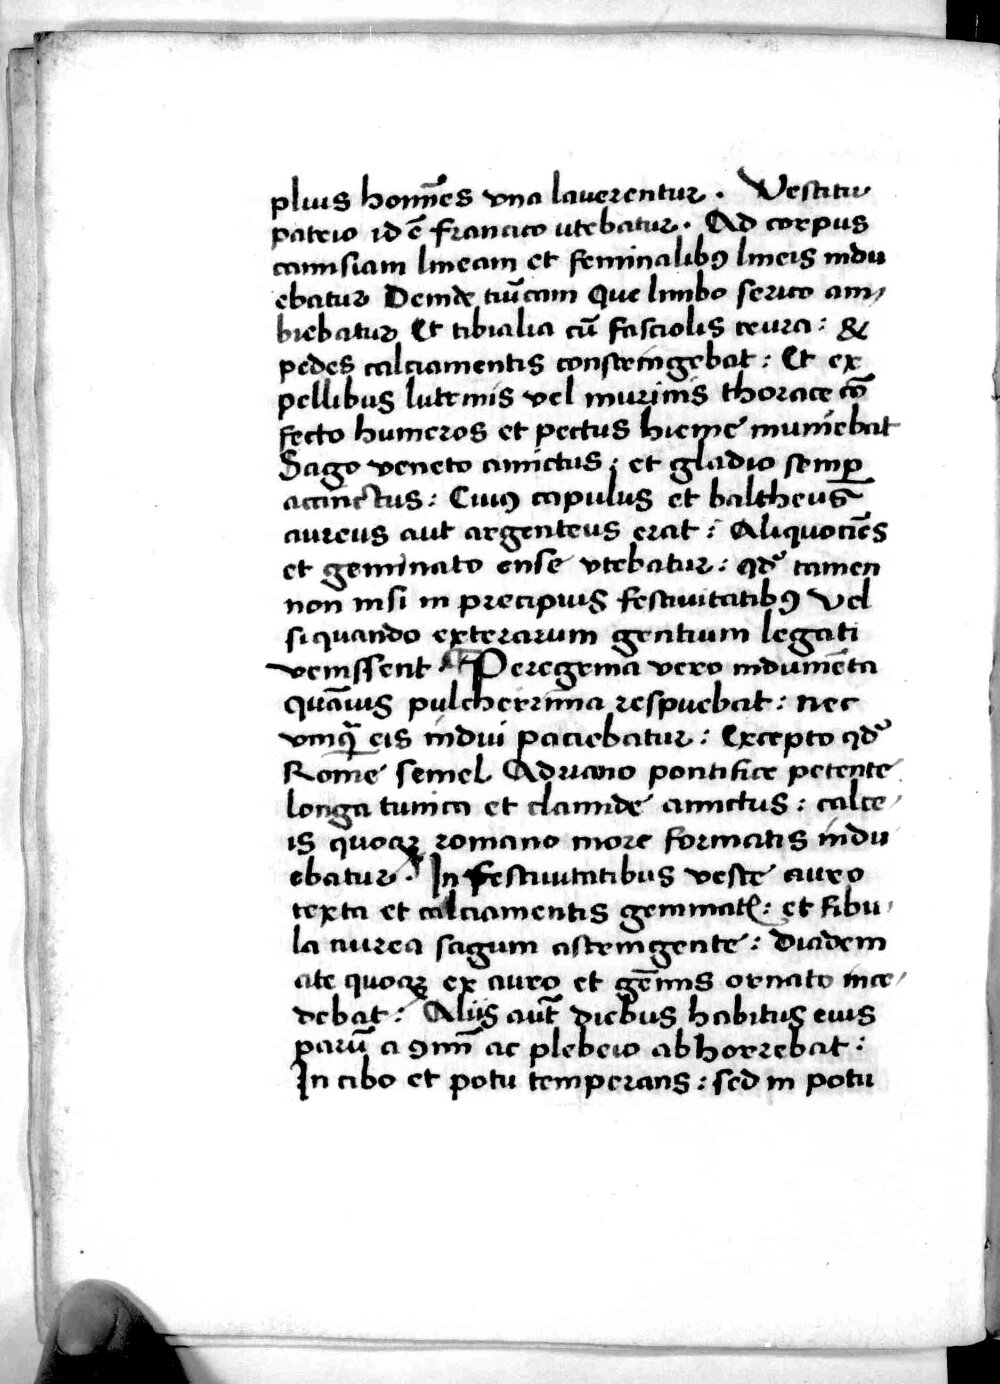 plius homīēs vna lauerentur . Vestitu
patrio id ē francico utebatur . Ad corpus
camisiam lineam et feminalibꝰ lineis indu
ebatur Deinde tūicam Que limbo serico am,
biebatur Et tibialia cū fasciolis crura : &
pedes calciamentis constringebat : Et ex
pellibus lutrinis vel murinis thorace cō
fecto humeros et pectus hieme muniebat
Sago veneto amictus : et gladio semꝑ
accinctus : Cuiꝰ capulus et baltheus
aureus aut argenteus erat : Aliquociēs
et geminato ense vtebatur : qd' tamen
non nisi in precipuis festiuitatibꝰ Vel
si quando exterarum gentium legati
venissent Peregrina vero indumēta
quāuis pulcherrima respuebat : nec
vmꝗ̄ eis indui paciebatur : Excepto qd'
Rome semel Adriano pontifice petente
longa tunica et clamide amictus : calce,
is quoqꝫ romano more formatis indu
ebatur . In festiuitatibus veste auro
texta et calciamentis gemmatꝭ : et fibu,
la aurea sagum astringente : Diadem
ate quoqꝫ ex auro et gēmis ornato ince,
debat : Aliis aut̄ diebus habitus eius
parū a ꝯmūi ac plebeio abhorrebat :
In cibo et potu temperans : sed in potu